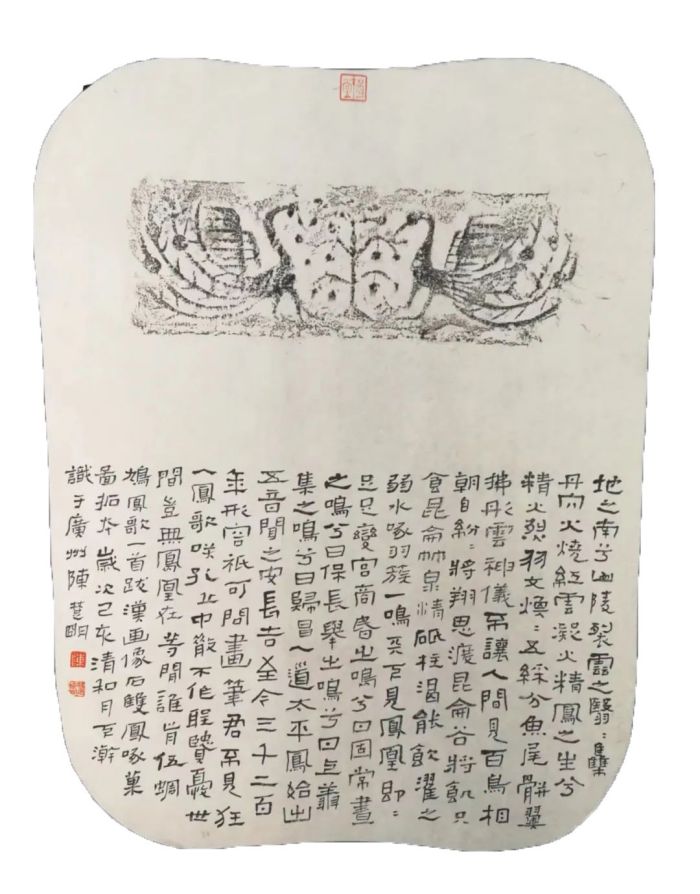 地之南兮山陵裂雲之翳=集
丹穴火燒紅雲凝火精鳳之生兮
精火烈羽文煥=五綵兮魚尾骿翼
拂彤雲神儀不讓人間見百鳥相
朝自紛=將翔思渡昆侖谷將飢只
食昆侖竹泉精砥柱渴能飲濯之
弱水啄羽蔟一鳴天下見鳳凰即=
足足變宮商昏之鳴兮曰固常晝
之鳴兮曰保長舉之鳴兮曰上翔
集之鳴兮曰歸昌人道太平鳳始出
五音聞之安長吉至今三千二百
年形容祇可問畫筆君不見狂
人鳳歌咲孔丘中散不作聖賢憂世
間豈無鳳凰在等閒誰肯伍蜩
鳩鳳歌一首跋漢画像石雙鳳啄菓
啚拓本歲次己亥清和月下澣
識于廣州陳楚明